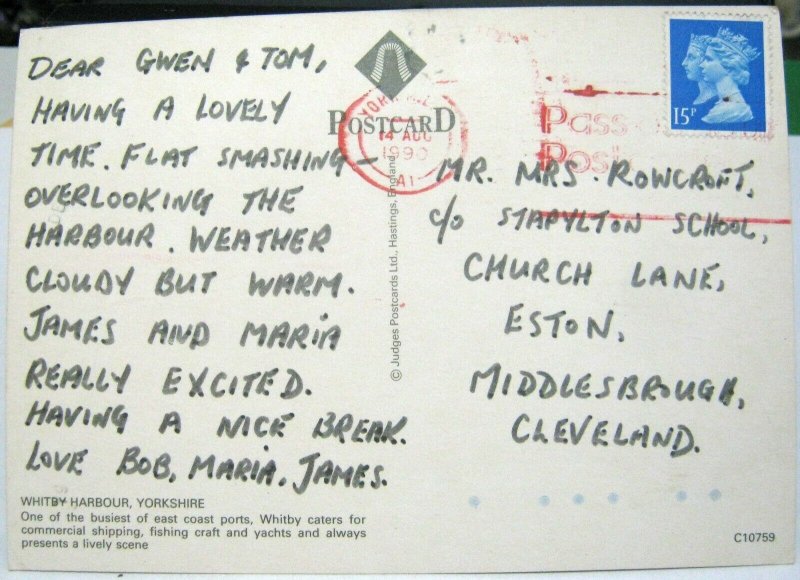 DEAR GWEN & TOM,
HAVING A LOVELY
TIME. FLAT SMASHING —
OVERLOOKING THE
HARBOUR. WEATHER
CLOUDY BUT WARM.
JAMES AND MARIA
REALLY EXCITED.
HAVING A NICE BREAK.
LOVE BOB, MARIA, JAMES.
WHITBY HARBOUR, YORKSHIRE
One of the busiest of east coast ports, Whitby caters for
commercial shipping, fishing craft and yachts and always
presents a lively scene
POSTCARD
14 AUG
1990
A1
© Judges Postcards Ltd., Hastings, England
Pass
Post
15P
MR. MRS. ROWCROFT,
c/o STAPYLTON SCHOOL,
CHURCH LANE,
ESTON,
MIDDLESBROUGH,
CLEVELAND.
C10759